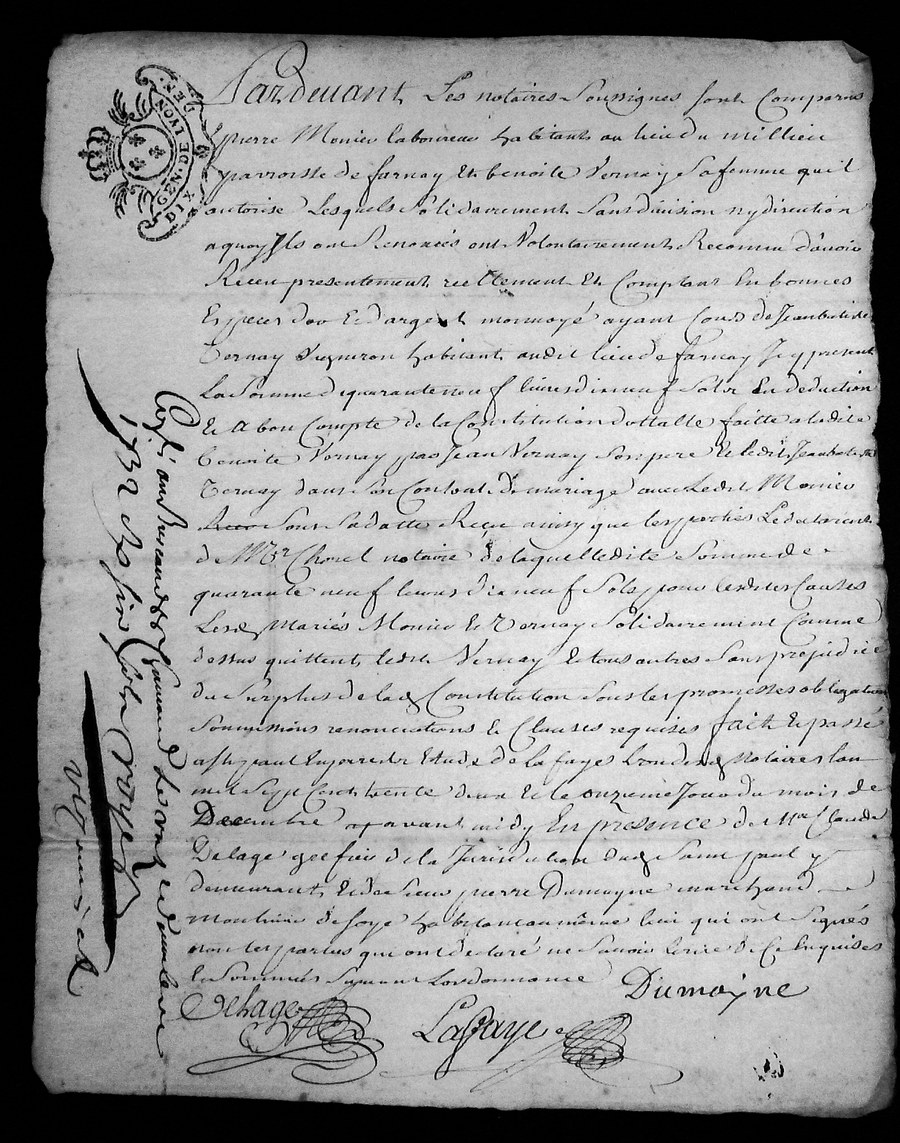 GEN. DE LYON
DIX DEN.
Pardevant Les notaires Soussignes sont Comparus
pierre Monier laboureur habitant au lieu du millieu
parroisse de farnay Et benoite Vernay Sa femme qu'il
autorise Lesquels Solidairement Sans division ny discution
a quoy Ils ont Renoncés ont Volontairement Reconnu d'avoir
Receu presentement reellement Et Comptant En bonnes
Especes d'or Et d'argent monnoyé ayant Cours de Jean batiste
Vernay Vigneron habitant audit lieu de farnay Icy present
La Somme de quarante neuf livres dix neuf Sols En deduction
Et A bon Compte de la Constitution dottalle faitte a ladite
benoite Vernay par Jean Vernay Son pere Et ledit Jean batiste
Vernay dans Son Contrat de mariage avec Ledit Monier
Sous Sa datte Receu ainsy que les parties Le declarent
de Mtre Chorel notaire de laquelle dite Somme de
quarante neuf livres dix neuf Sols pour lesdites Causes
Lesd mariés Monier Et Vernay Solidairement Comme
dessus quittent ledit Vernay Et tous autres Sans prejudice
du Surplus de lad Constitution Sous les promesses obligations
Soumissions renonciations Et Clauses requises fait Et passé
a St paul En Jarrest Etude de Lafaye L'un desd Notaires lan
mil Sept Cent trente deux Et le onzieme Jour du mois de
Decembre avant midy En presence de Me Claude
Delage greffier de la Jurisdiction dud Saint paul y
demeurant Et de Sieur pierre Dumoyne marchand
moulinier de Soye habitant au même lieu qui ont Signés
non les parties qui ont declaré ne Savoir Ecrire de Ce Enquises
Et Sommées Suivant Lordonnance
Dumoyne
Delage
Lafaye
1732